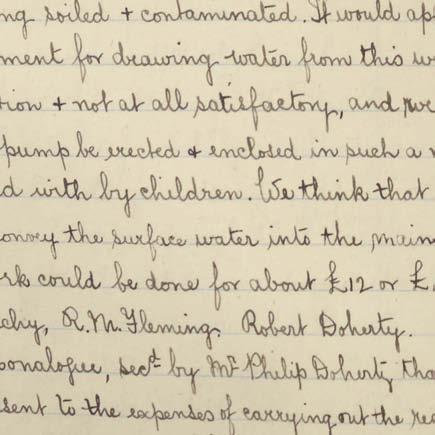 ng soiled + contaminated. It would ap
ment for drawing water from this w
tion + not at all satisfactory, and we
pump be erected & enclosed in such a
d with by children. We think that
onvey the surface water into the main
rk could be done for about £12 or £
chy, R. M. Fleming. Robert Doherty.
onalogue, secd. by Mr Philip Doherty tha
sent to the expenses of carrying out the re